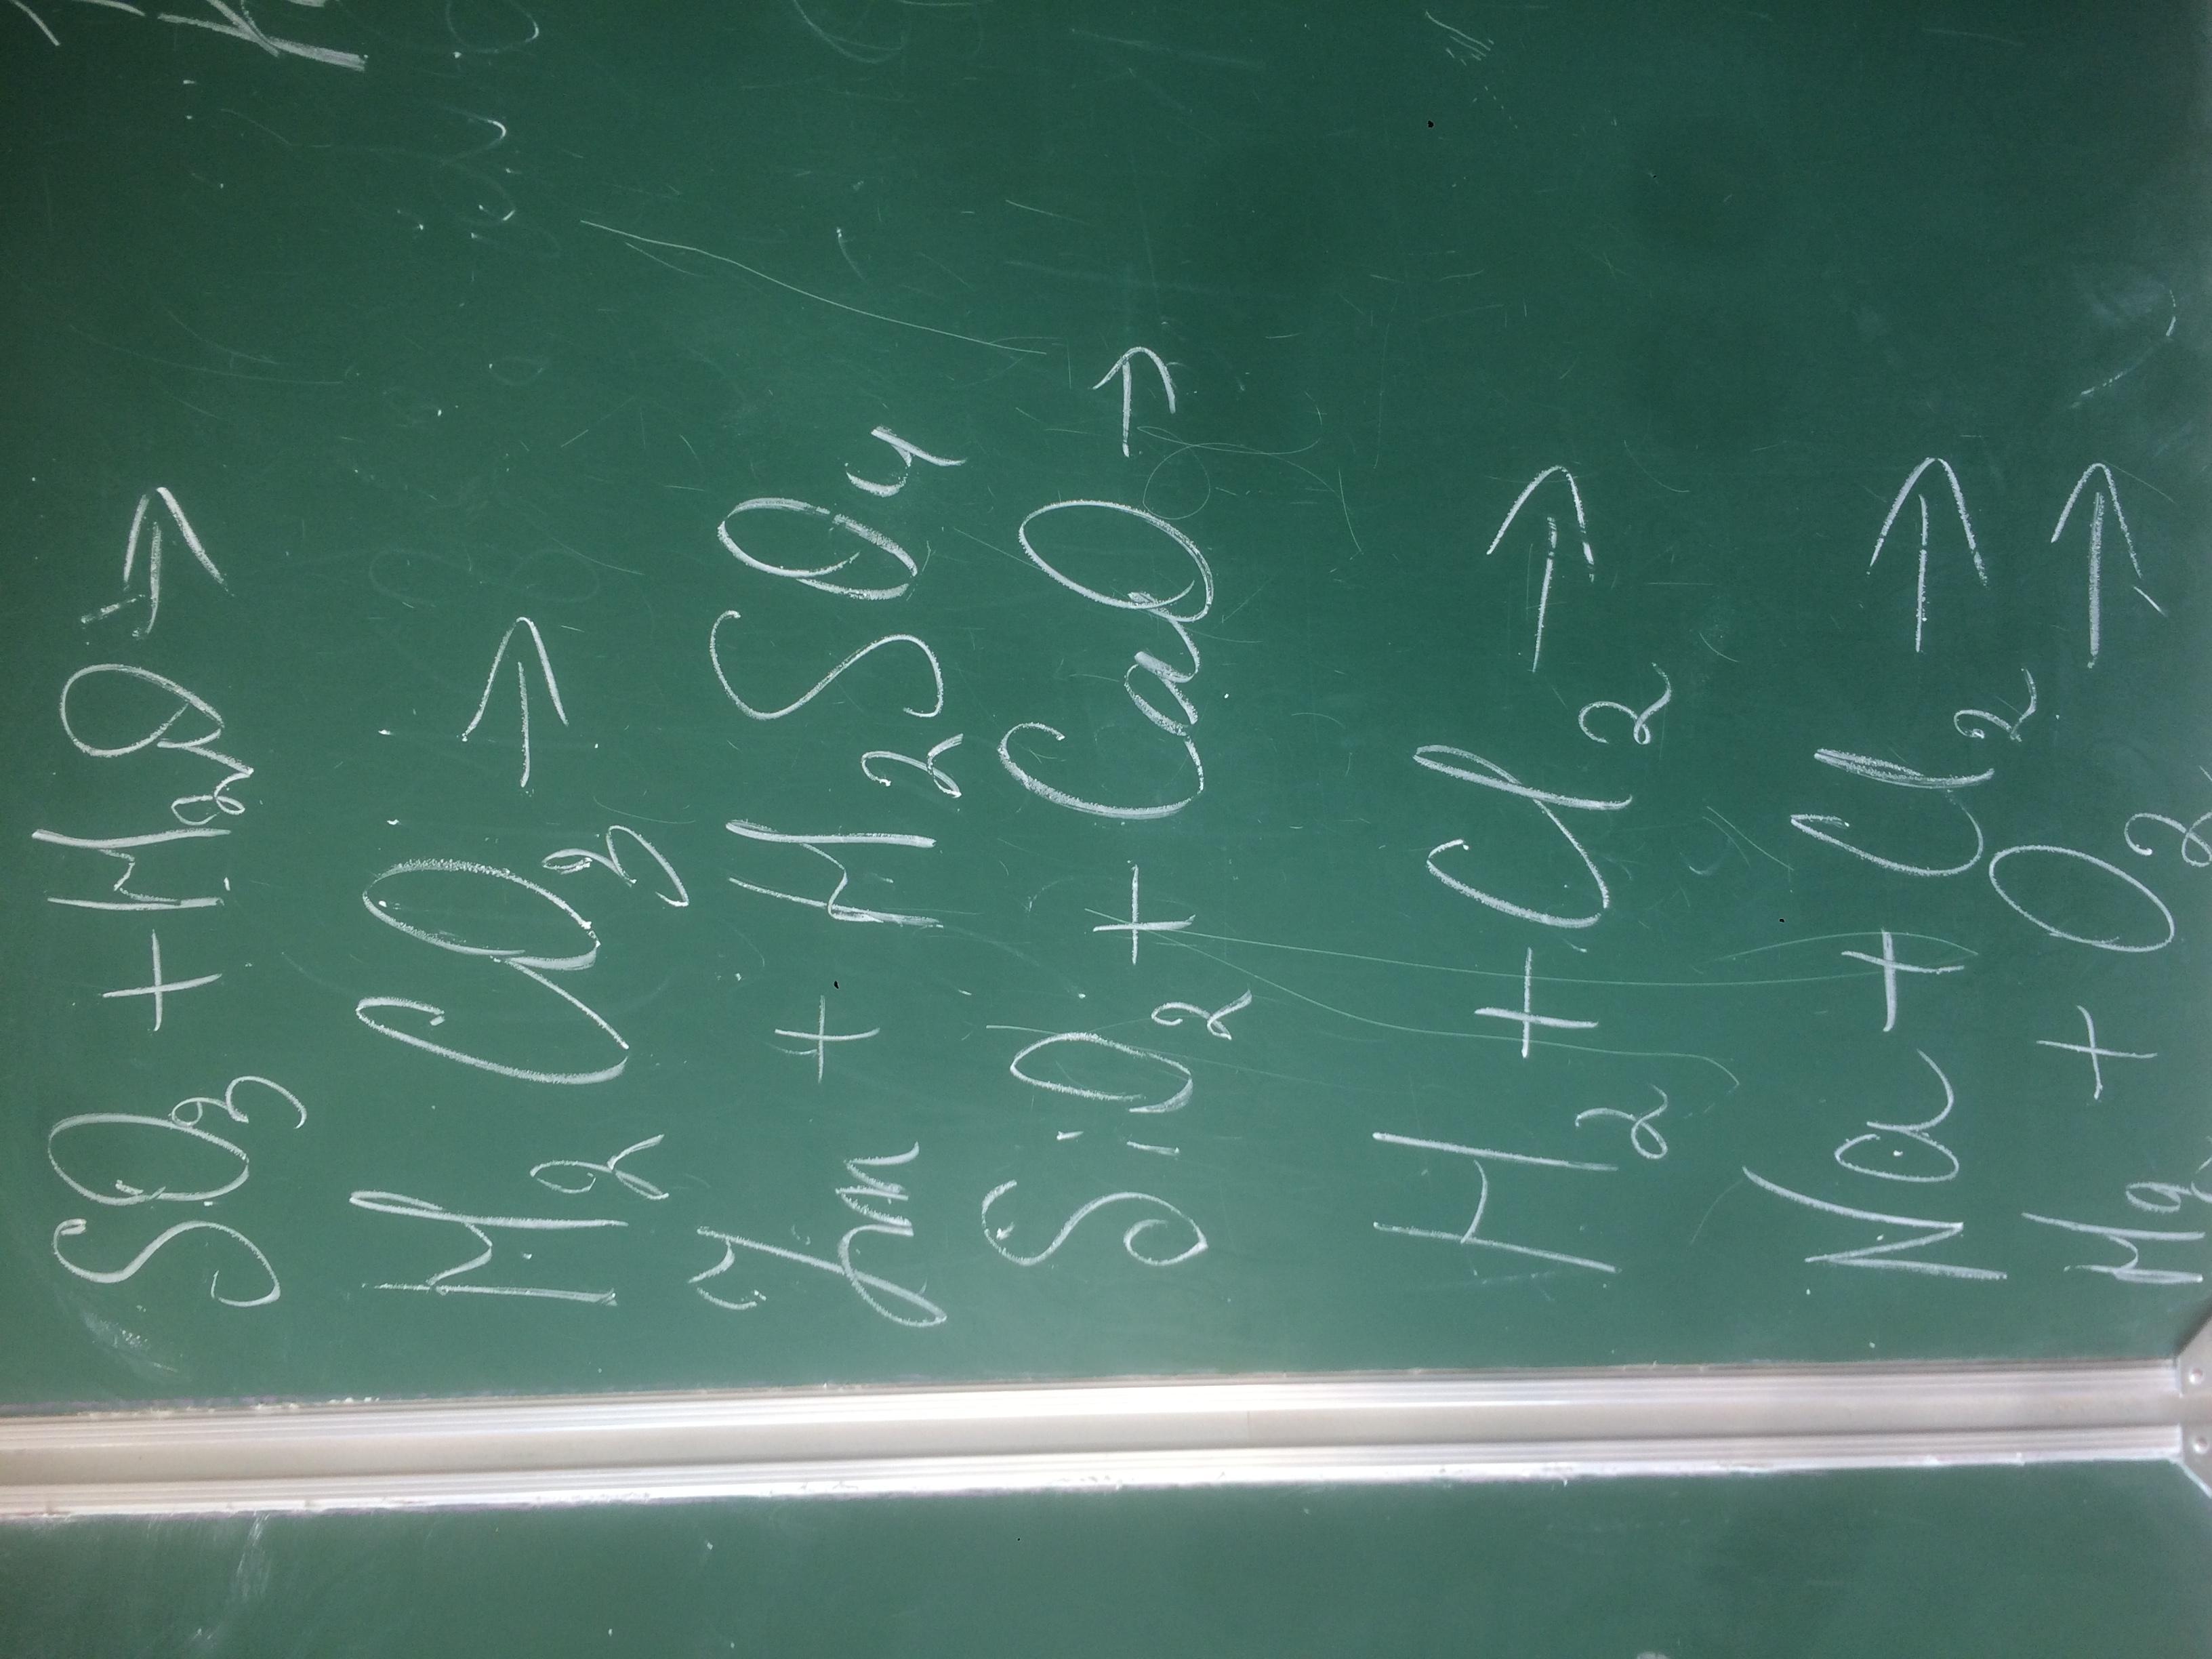 SO₃ + H₂O →
H₂CO₃ →
Zn + H₂SO₄
SiO₂ + CaO →
H₂ + Cl₂ →
Na + Cl₂ →
Mg + O₂ →